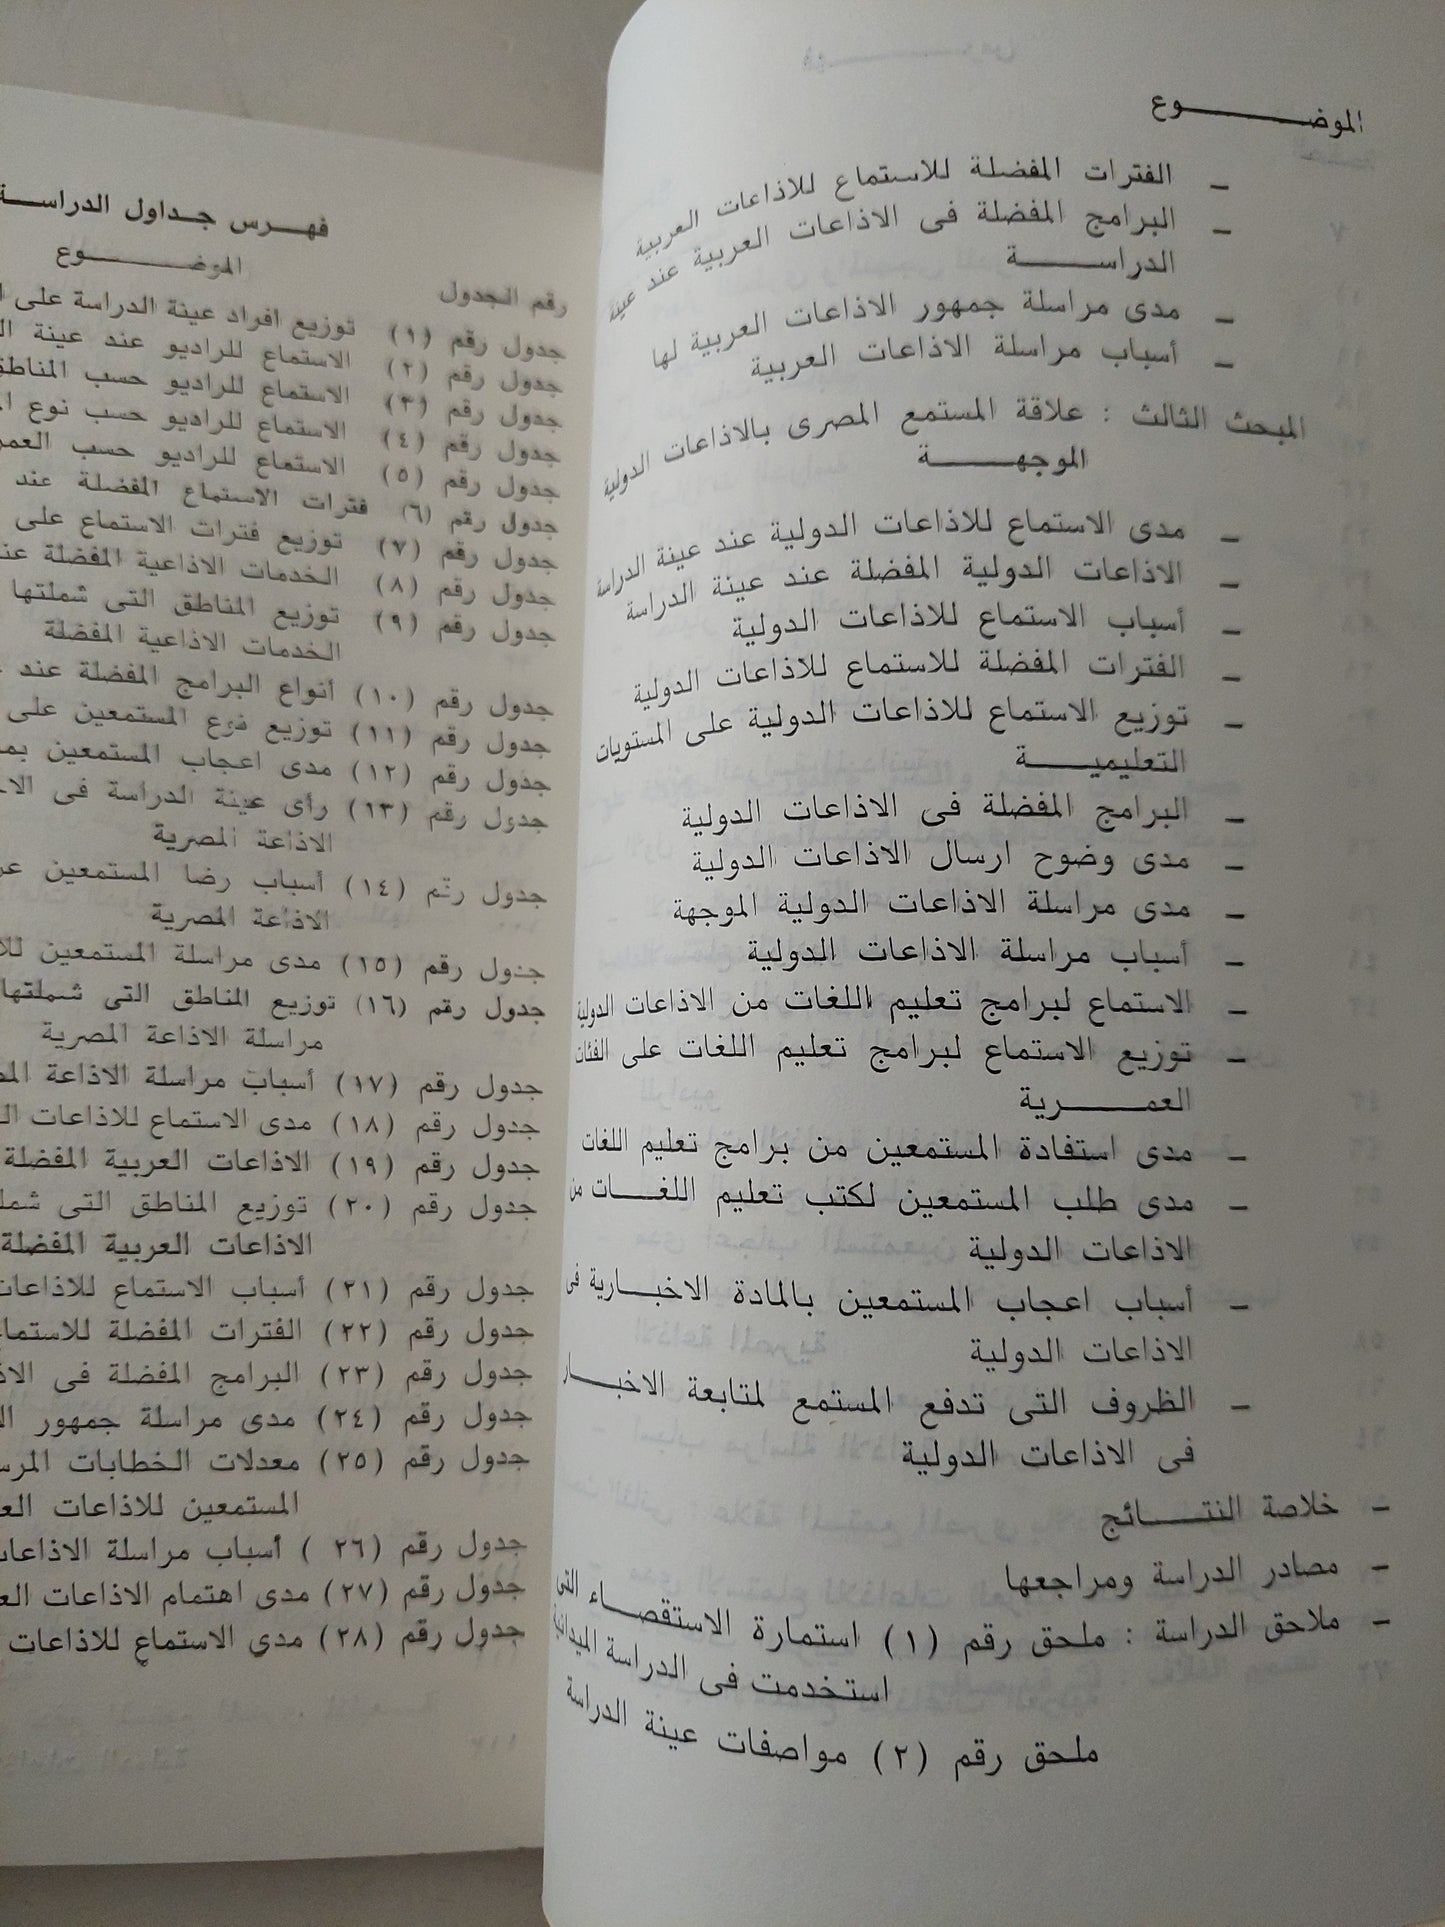 الموضـــــــوع
ـ الفترات المفضلة للاستماع للاذاعات العربية
ـ البرامج المفضلة فى الاذاعات العربية عند عينة
الدراســـــة
ـ مدى مراسلة جمهور الاذاعات العربية لها
ـ أسباب مراسلة الاذاعات العربية
المبحث الثالث : علاقة المستمع المصرى بالاذاعات الدولية
الموجهـــــة
ـ مدى الاستماع للاذاعات الدولية عند عينة الدراسة
ـ الاذاعات الدولية المفضلة عند عينة الدراسة
ـ أسباب الاستماع للاذاعات الدولية
ـ الفترات المفضلة للاستماع للاذاعات الدولية
ـ توزيع الاستماع للاذاعات الدولية على المستويات
التعليميـــــة
ـ البرامج المفضلة فى الاذاعات الدولية
ـ مدى وضوح ارسال الاذاعات الدولية
ـ مدى مراسلة الاذاعات الدولية الموجهة
ـ أسباب مراسلة الاذاعات الدولية
ـ الاستماع لبرامج تعليم اللغات من الاذاعات الدولية
ـ توزيع الاستماع لبرامج تعليم اللغات على الفئات
العمـــــرية
ـ مدى استفادة المستمعين من برامج تعليم اللغات
ـ مدى طلب المستمعين لكتب تعليم اللغـــات من
الاذاعات الدولية
ـ أسباب اعجاب المستمعين بالمادة الاخبـــارية فى
الاذاعات الدولية
ـ الظروف التى تدفع المستمع لمتابعة الاخبـــار
فى الاذاعات الدولية
ـ خلاصة النتـــــائج
ـ مصادر الدراسة ومراجعها
ـ ملاحق الدراسة : ملحق رقم (١) استمارة الاستقصـــاء التى
استخدمت فى الدراسة الميدانية
ملحق رقم (٢) مواصفات عينة الدراسة
فهـــرس جـداول الدراســـة
رقم الجدول الموضـــــــوع
جدول رقم (١) توزيع افراد عينة الدراسة على
جدول رقم (٢) الاستماع للراديو عند عينة
جدول رقم (٣) الاستماع للراديو حسب المناطق
جدول رقم (٤) الاستماع للراديو حسب نوع
جدول رقم (٥) الاستماع للراديو حسب العمر
جدول رقم (٦) فترات الاستماع المفضلة عند
جدول رقم (٧) توزيع فترات الاستماع على
جدول رقم (٨) الخدمات الاذاعية المفضلة
جدول رقم (٩) توزيع المناطق التى شملتها
الخدمات الاذاعية المفضلة
جدول رقم (١٠) أنواع البرامج المفضلة عند
جدول رقم (١١) توزيع نوع المستمعين على
جدول رقم (١٢) مدى اعجاب المستمعين
جدول رقم (١٣) رأى عينة الدراسة فى
الاذاعة المصرية
جدول رقم (١٤) أسباب رضا المستمعين
الاذاعة المصرية
جدول رقم (١٥) مدى مراسلة المستمعين
جدول رقم (١٦) توزيع المناطق التى شملتها
مراسلة الاذاعة المصرية
جدول رقم (١٧) أسباب مراسلة الاذاعة
جدول رقم (١٨) مدى الاستماع للاذاعات
جدول رقم (١٩) الاذاعات العربية المفضلة
جدول رقم (٢٠) توزيع المناطق التى
الاذاعات العربية المفضلة
جدول رقم (٢١) أسباب الاستماع للاذاعات
جدول رقم (٢٢) الفترات المفضلة
جدول رقم (٢٣) البرامج المفضلة فى
جدول رقم (٢٤) مدى مراسلة جمهور
جدول رقم (٢٥) معدلات الخطابات
المستمعين للاذاعات
جدول رقم (٢٦ ) أسباب مراسلة
جدول رقم (٢٧) مدى اهتمام الاذاعات
جدول رقم (٢٨) مدى الاستماع للاذاعات